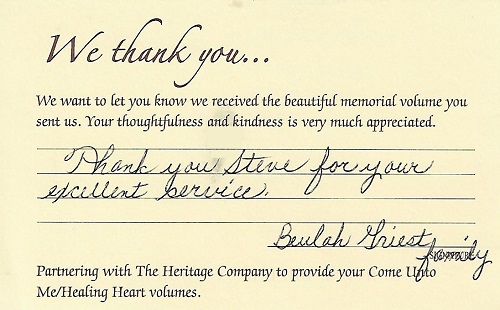 We thank you...
We want to let you know we received the beautiful memorial volume you
sent us. Your thoughtfulness and kindness is very much appreciated.
Thank you Steve for your
excellent service.
Beulah Griest family
Partnering with The Heritage Company to provide your Come Unto
Me/Healing Heart volumes.